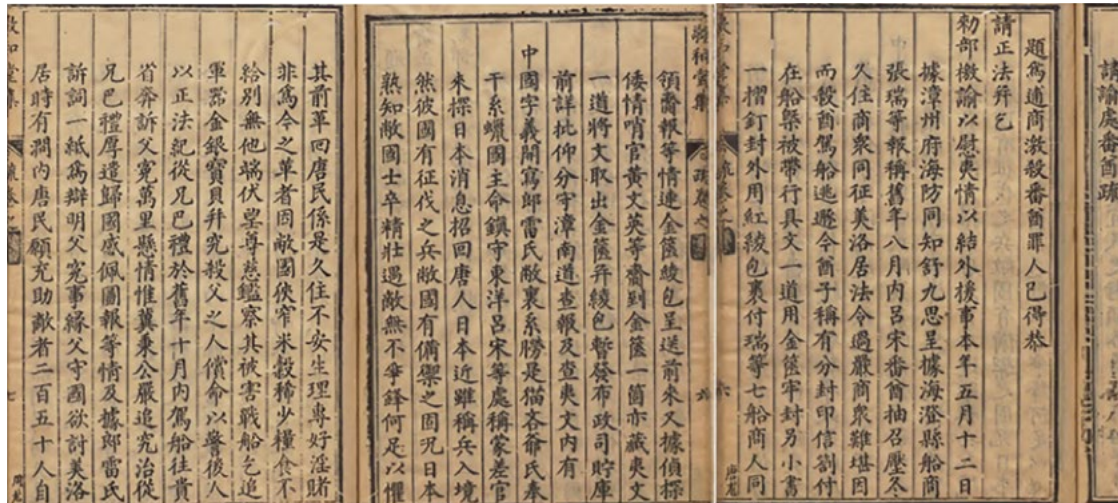 請諭處番酋疏
題爲通商激殺番酋罪人已得恭
請正法并乞
勑部檄諭以慰夷情以結外援事本年五月十二日
據漳州府海防同知舒九思呈據海澄縣船商
張瑞等報稱舊年八月内呂宋番酋抽召壓冬
久住商衆同征美洛居法令過嚴商衆難堪因
而殺酋駕船逃遯今酋子稱有分封印信劄付
在船槩被帶行具文一道用金篋牢封另小書
一摺釘封外用紅綾包裹付瑞等七船商人同
領齎報等情連金篋綾包呈送前來又據偵探
倭情哨官黄文英等齎到金篋一箇亦藏夷文
一道將文取出金篋并綾包暫發布政司貯庫
前詳批仰分守漳南道查報及查夷文内有
中國字義開寫郎雷氏敝裏系勝是猫吝爺氏奉
干系蠟國主命鎮守東洋呂宋等處稱蒙差官
來探日本消息招回唐人日本近雖稱兵入境
然彼國有征伐之兵敝國有備禦之固况日本
熟知敵國士卒精壯遇敵無不爭鋒何足以懼
其前革回唐民係是久住不安生理專好淫賭
非爲今之革者因敝國俠窄米穀稀少糧食不
給別無他端伏望尊慈鑑察其被害戰船乞追
軍器金銀寶貝并究殺父之人償命以警後人
以正法紀從兄巴禮於舊年十月内駕船往貴
省奔訴父冤萬里懸情惟冀秉公嚴追究治從
兄巴禮厚遣歸國感佩圖報等情及據郎雷氏
訴詞一紙爲辯明父冤事緣父守國欲討美洛
居時有澗内唐民願充助敵者二百五十人自